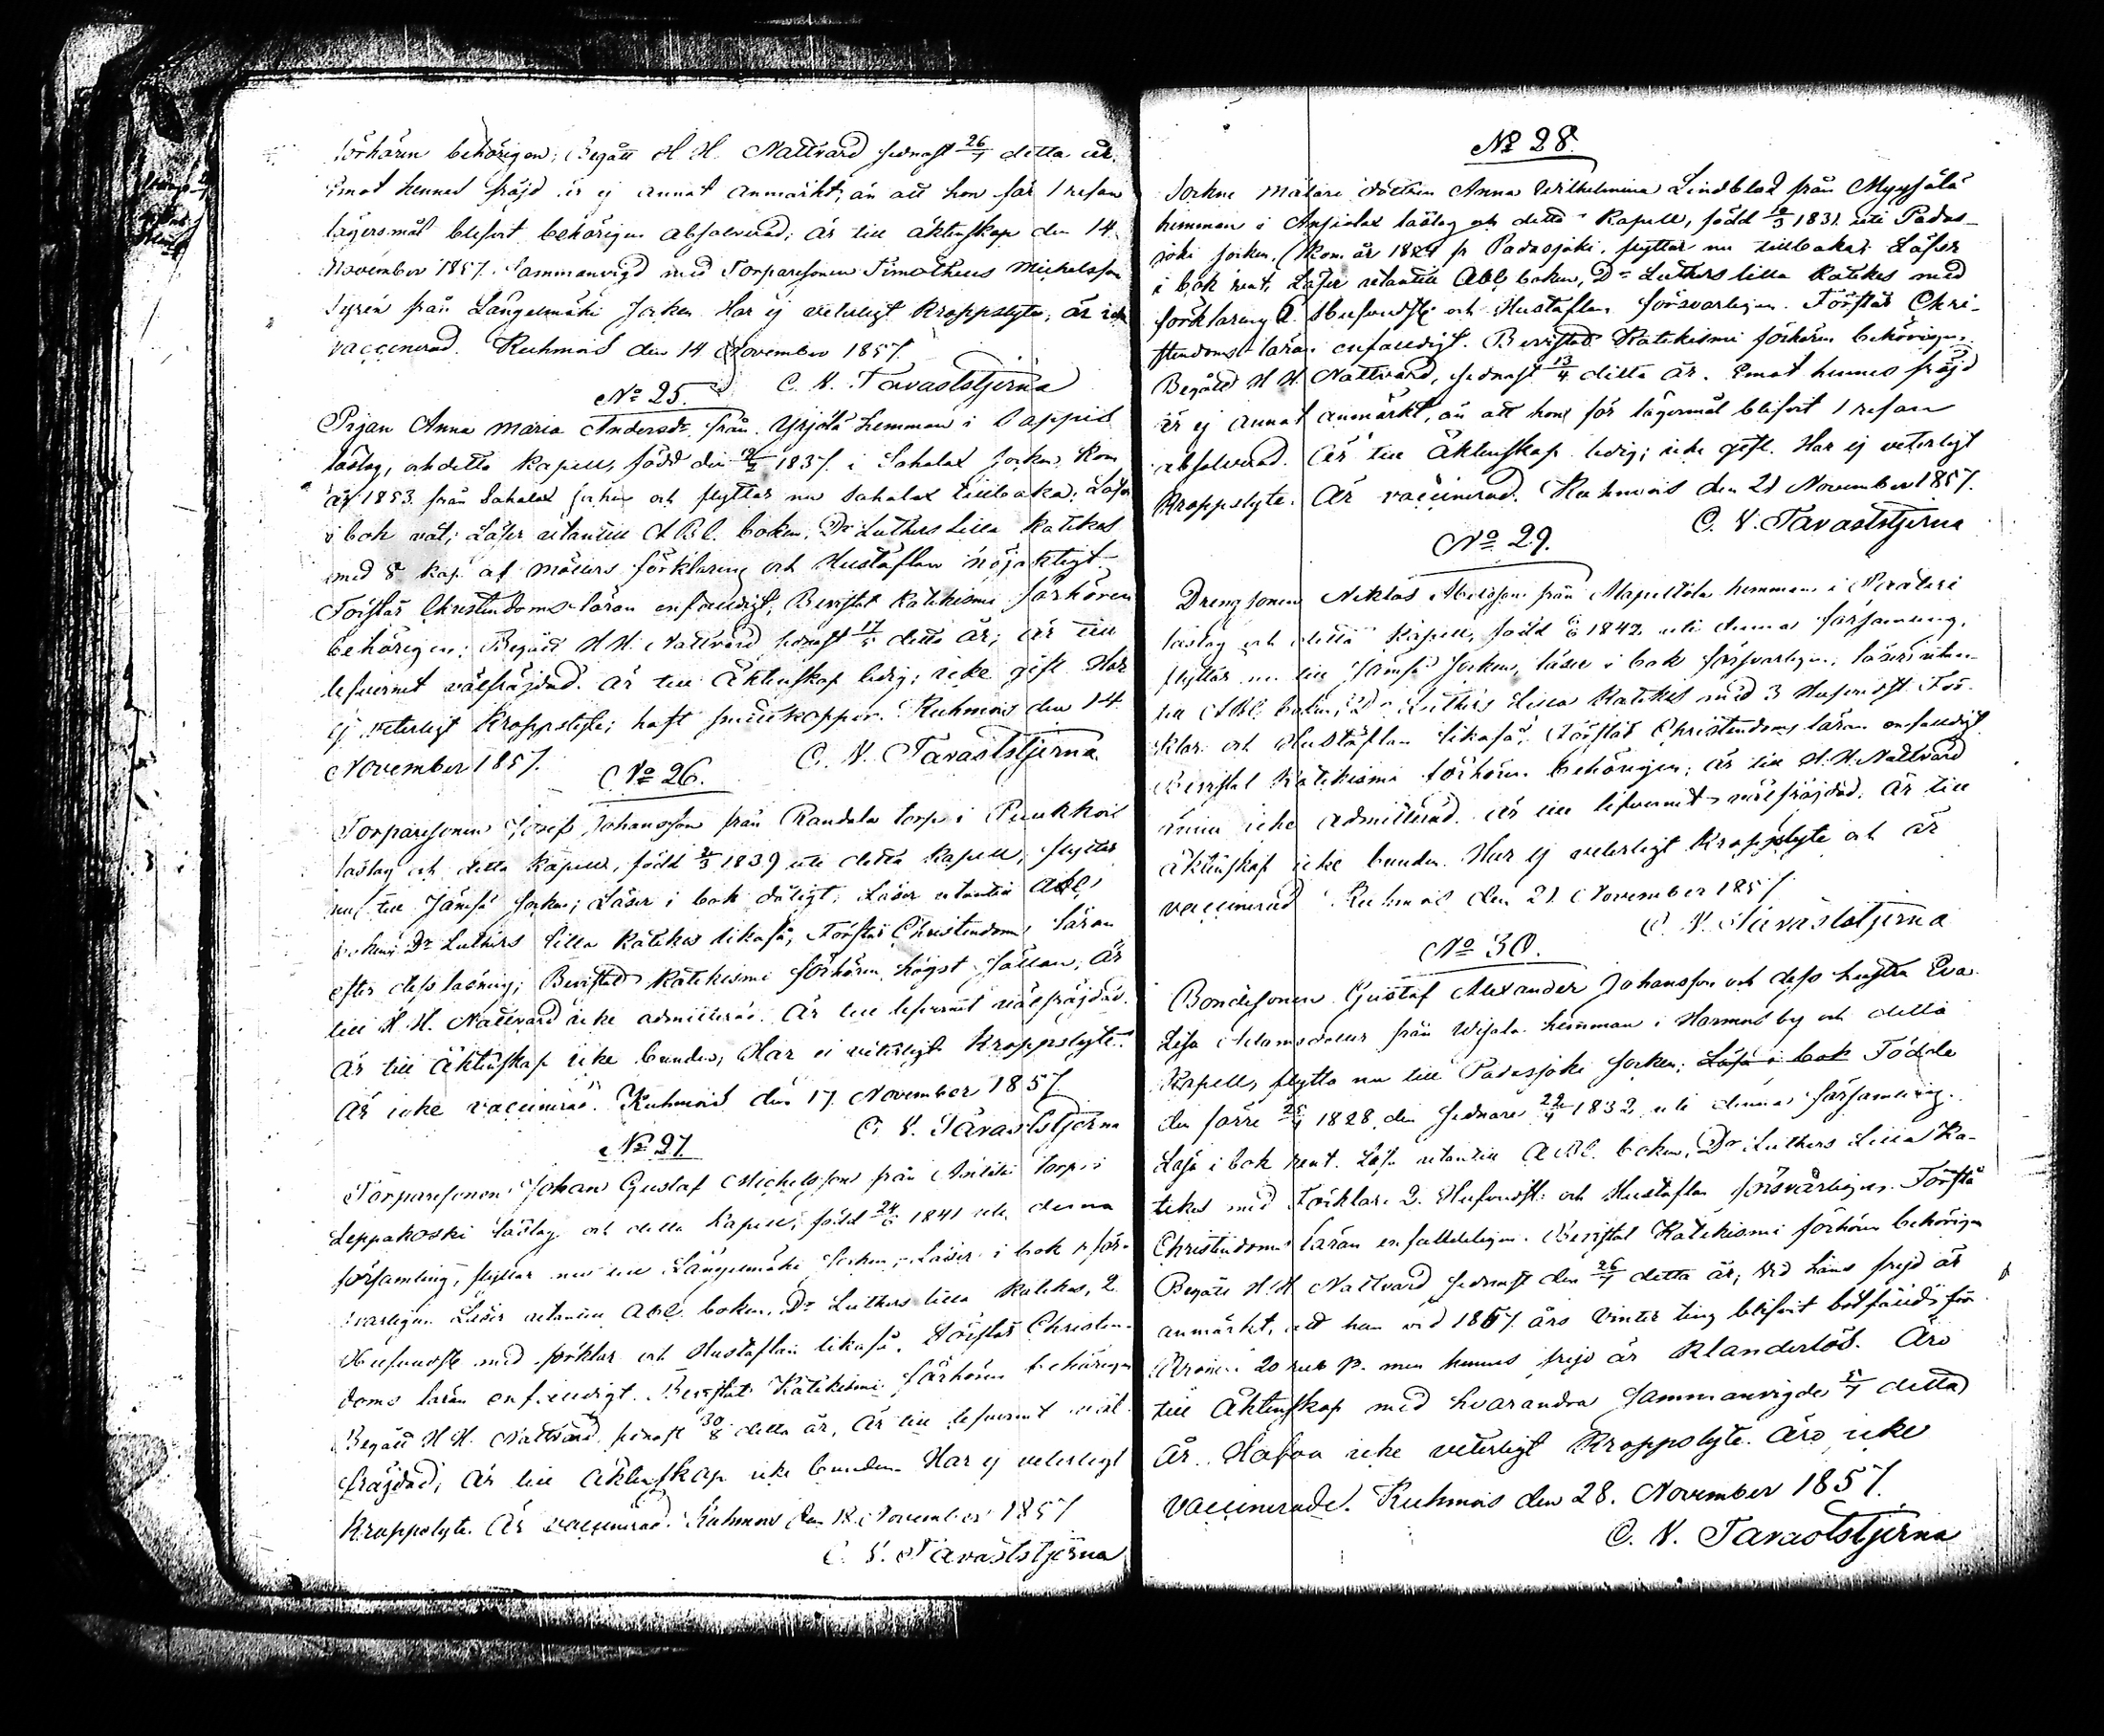 förhören behörigen; Begått H. H. Nattvard sednast 26/7 detta år.
Emot hennes fräjd är ej annat anmärkt, än att hon för 1 resan
lägersmål blifvit behörigen absolverad; är till äktenskap den 14
November 1857. Sammanvigd med Torparesonen Timotheus Michelsson
från Längelmäki Socken Har ej veterligt kroppslyte, är icke
vaccinerad. Kuhmois den 14 November 1857.
C. V. Tavaststjerna
No 25.
Pigan Anna Maria Andersdr från Yrjölä hemman i
läslag, och detta Kapell, född den 1837. i Sahalax Socken, Kom
år 1853 från Sahalax Socken och flyttar nu Sahalax tillbaka; Läser
i bok nöt; Läser utantill A.B.C. boken, Dr Luthers Lilla Katekes
med 8 Kap. af förklaring och Hustaflan nöjaktigt.
Förstår Christendoms läran enfaldigt; Bevistat Katekismi förhören
behörigen; Begått H. H. Nattvard sednast detta år; är till
lefvernet välfräjdad. är till Äktenskap ledig; icke gift Har
ej veterligt kroppslyte; haft smittkoppor. Kuhmois den 14
November 1857.
C. V. Tavaststjerna
No 26.
Torparesonen Josef Johansson från Randala torp i Puukkois
läslag och detta Kapell, född 2/3 1839 uti detta Kapell, flyttar
nu till Jämsä Socken; Läser i bok dåligt, Läser utantill abc
boken, Dr Luthers lilla Katekes likaså, Förstår Christendoms läran
efter dess läsning; Bevistad Katekismi förhören högst sällan; är
till H. H. Nattvard icke admitterad. Är till lefvernet välfräjdad.
Är till Äktenskap icke bunden, Har ej veterligt kroppslyte.
Är icke vaccinerad. Kuhmois den 17 November 1857
C. V. Tavaststjerna
No 27
Torparesonen Johan Gustaf Michelsson från torp i
Leppäkoski läslag och detta Kapell, född 1841 uti denna
församling, flyttar nu till Längelmäki Socken; Läser i bok för-
svarligen Läser utantill ABC boken, Dr Luthers lilla Katekes, 2
Hufvudst. med förklar. och Hustaflan likaså, Förstår Christen-
doms läran enfaldigt. Bevistat Katekismi förhören behörigen
Begått H. H. Nattvard sednast 30/8 detta år, Är till lefvernet väl-
fräjdad, är till äktenskap icke bunden. Har ej veterligt
kroppslyte. Är vaccinerad. Kuhmois den 18 November 1857
C. V. Tavaststjerna
No 28.
Sockne Målare dottren Anna Wilhelmina Lindblad från
hemman i läslag och detta Kapell, född 1831 uti Padas-
joki socken, Kom år fr Padasjoki, flyttar nu tillbaka; Läser
i bok rent, Läser utantill ABC boken, Dr Luthers lilla Katekes med
förklaring Hufvudst. och Hustaflan försvarligen. Förstår Chri-
stendoms läran enfaldigt. Bevistad Katekismi förhören behörigen.
Begått H. H. Nattvard, sednast 13/4 detta år. Emot hennes fräjd
är ej annat anmärkt, än att hon för lägersmål blifvit 1 resan
absolverad. Är till Äktenskap ledig; icke gift. Har ej veterligt
Kroppslyte. Är vaccinerad. Kuhmois den 21 November 1857.
C. V. Tavaststjerna
No 29.
Drengsonen Niklas från hemman i
läslag och detta Kapell, född 1842 uti denna församling,
flyttar nu till Jämsä Socken, läser i bok försvarligen, läser utan-
till ABC boken, Dr Luthers Lilla Katekes med 3 Hufvudst. För-
klar. och Hustaflan likaså. Förstår Christendoms läran enfaldigt
Bevistat Katekismi förhören behörigen; är till H. H. Nattvard
ännu icke admitterad. är till lefvernet välfräjdad. Är till
äktenskap icke bunden. Har ej veterligt kroppslyte och är
vaccinerad Kuhmois den 21 November 1857
C. V. Tavaststjerna
No 30.
Bondesonen Gustaf Alexander Johansson och dess hustru Eva
Lisa Adamsdotter från hemman i Harmois by och detta
Kapell, flytta nu till Padasjoki Socken; Läsa i bok Födde
den förre 1828, den sednare 22/4 1832 uti denna församling.
Läsa i bok rent. Läsa utantill A.B.C. boken, Dr Luthers Lilla Ka-
tekes med Förklar. 2. Hufvudst. och Hustaflan försvarligen. Förstå
Christendoms läran enfaldeligen. Bevistat Katekismi förhören behörigen
Begått H. H. Nattvard sednast den 26/7 detta år; Vid hans frejd är
anmärkt, att han vid 1857 års Vinter ting blifvit botfälld för
20 rub. men hennes frejd är klanderlös. Äro
till Äktenskap med hvarandra Sammanvigde detta
år. Hafva icke veterligt Kroppslyte. Äro icke
vaccinerade. Kuhmois den 28. November 1857.
C. V. Tavaststjerna